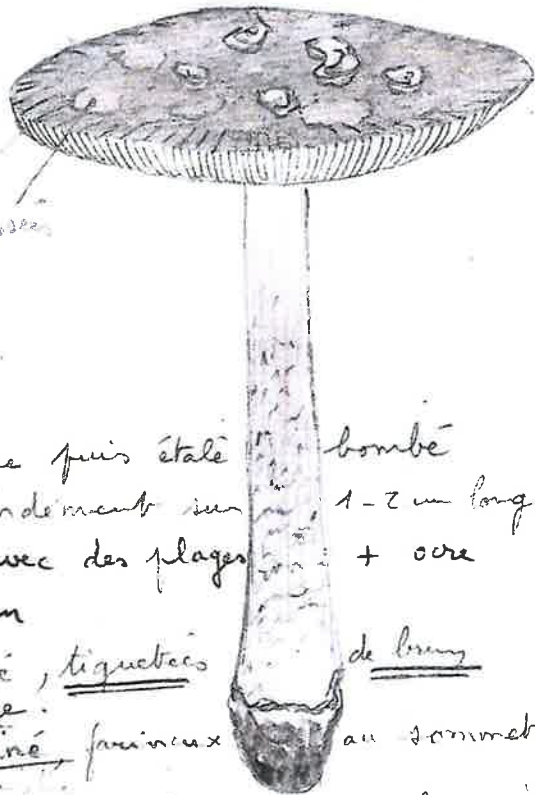 e puis étalé bombé
ndément sur 1-2 cm long
avec des plages + ocre
n
é, tiquetées de brun
e.
iné, farineux au sommet